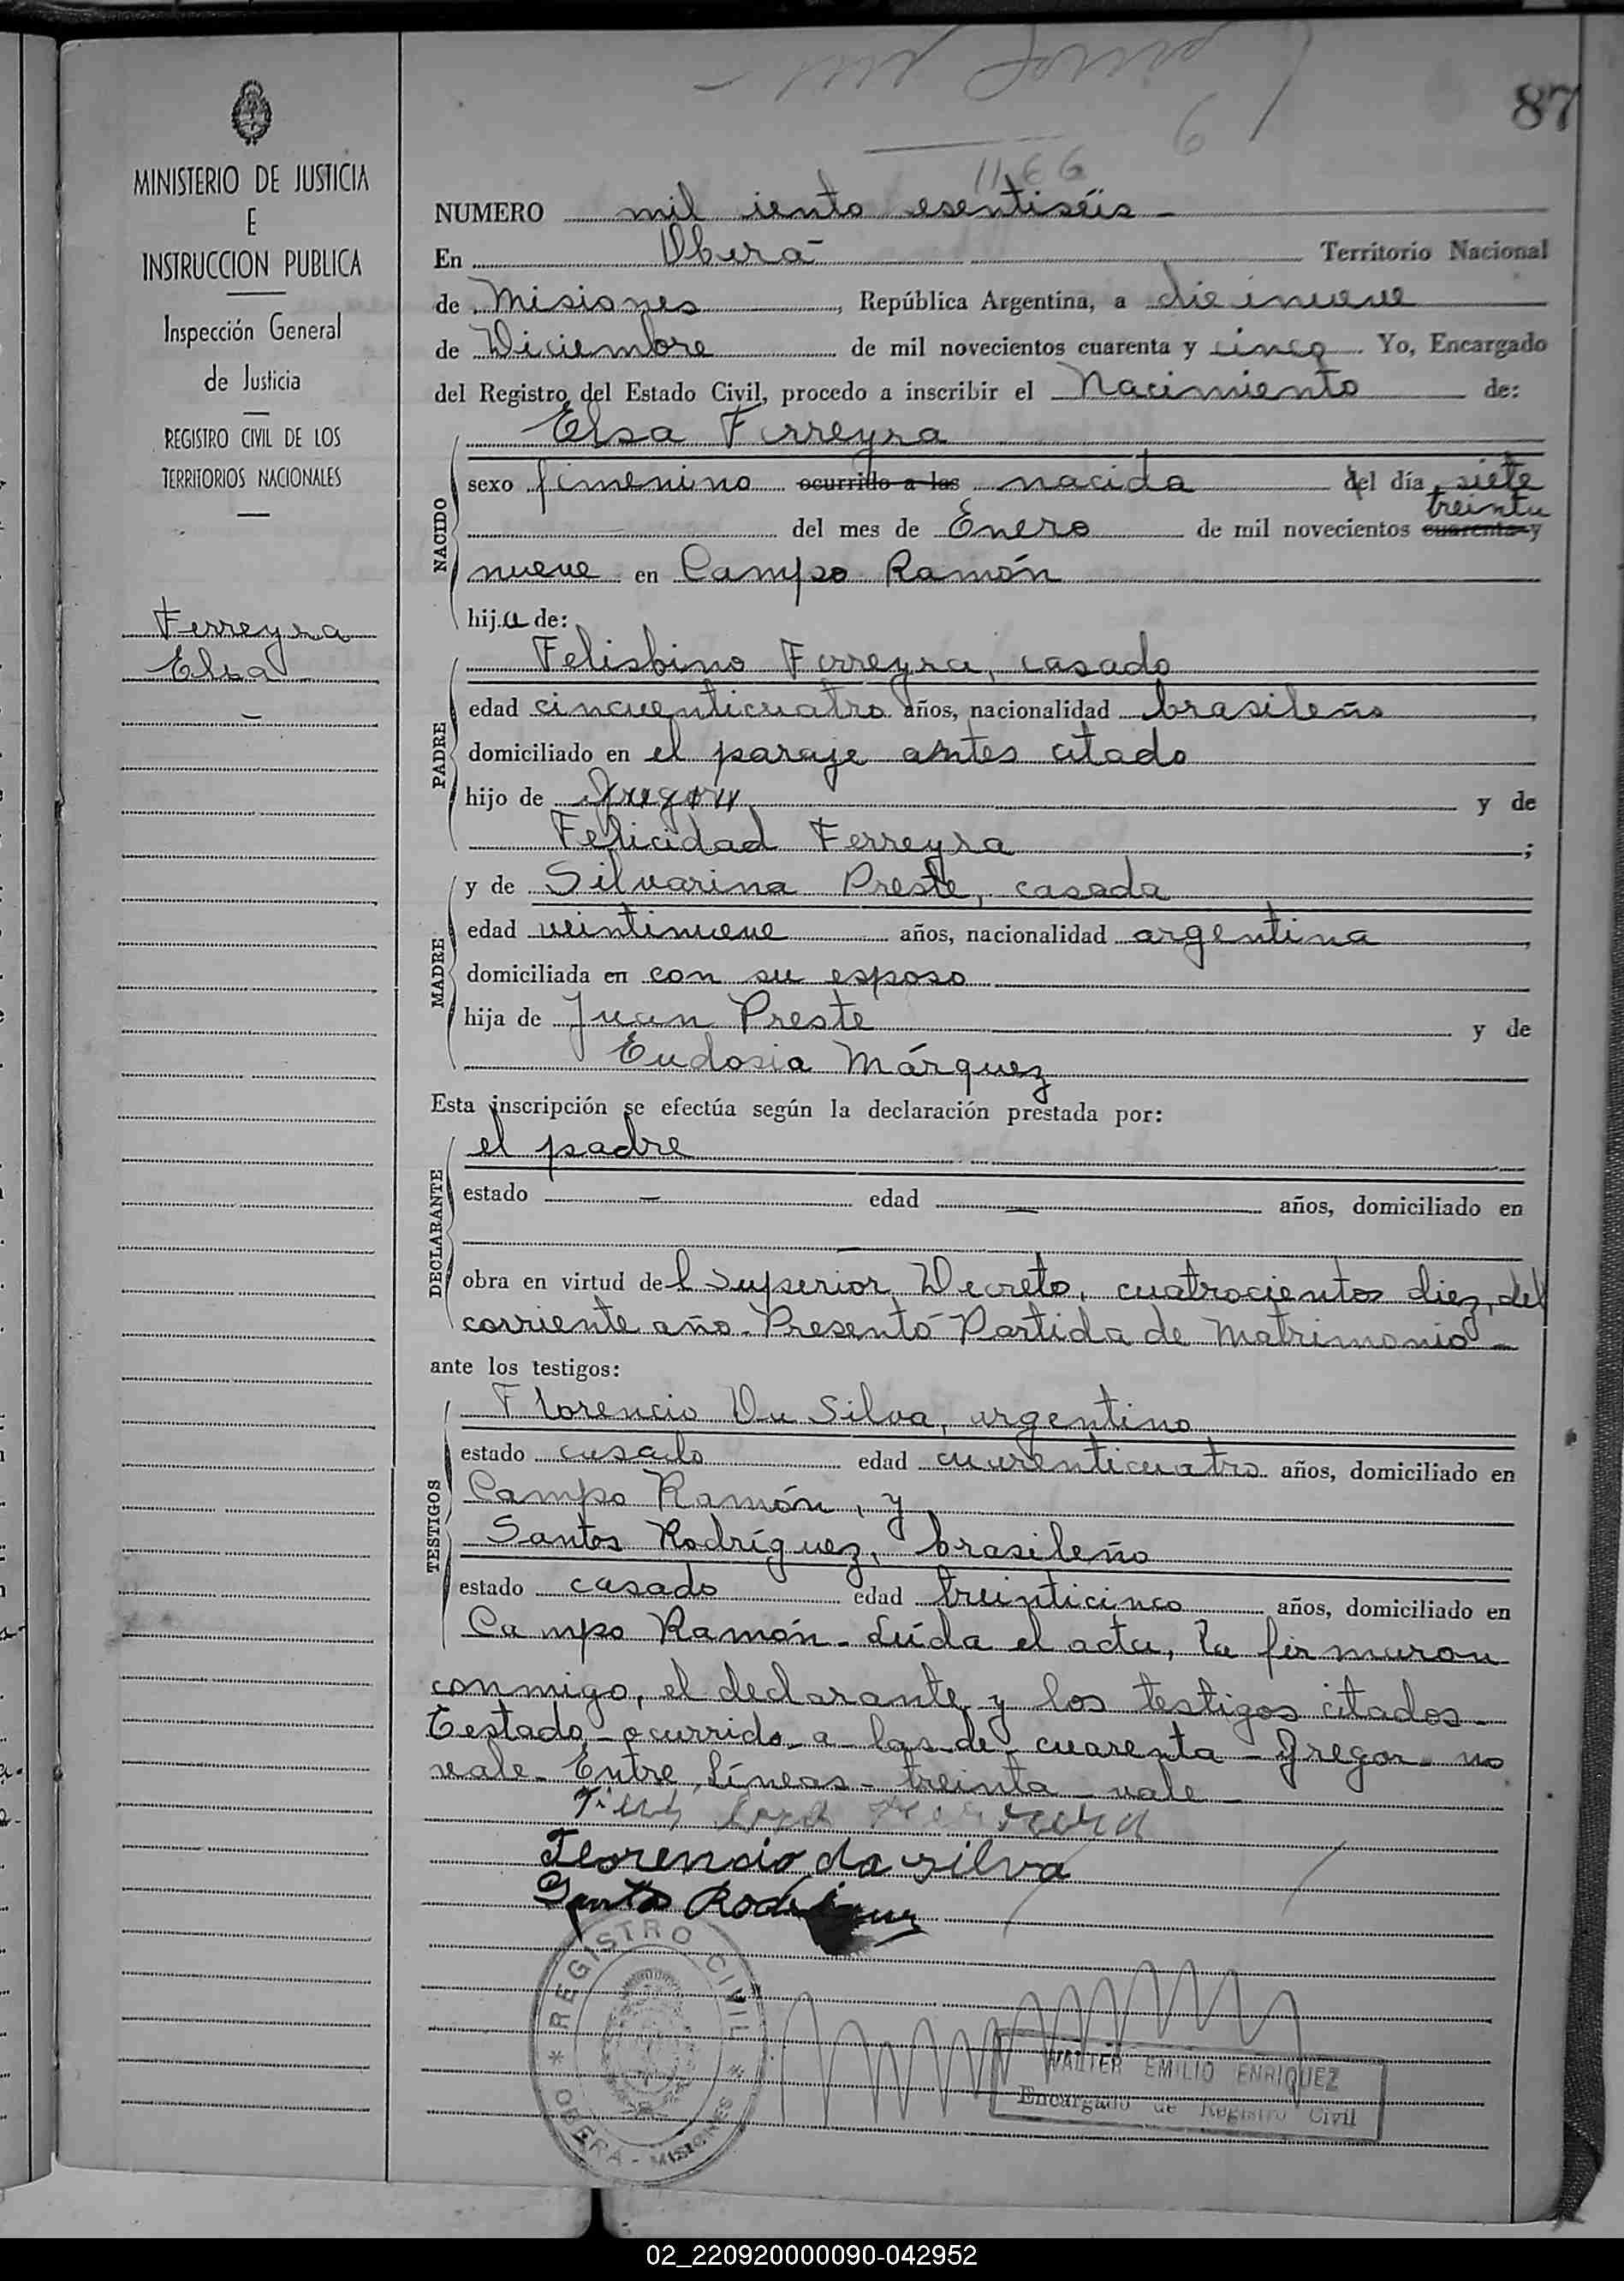 87
1166
MINISTERIO DE JUSTICIA
E
INSTRUCCION PUBLICA
Inspección General
de Justicia
REGISTRO CIVIL DE LOS
TERRITORIOS NACIONALES
Ferreyra
Elsa
NUMERO mil iento esentiséis -
En Oberá - Territorio Nacional
de Misiones, República Argentina, a die inueve
de Diciembre de mil novecientos cuarenta y cinco. Yo, Encargado
del Registro del Estado Civil, procedo a inscribir el Nacimiento de:
NACIDO
Elsa Ferreyra
sexo femenino ocurrido a las nacida del día siete
treinta
del mes de Enero de mil novecientos cuarenta y
nueve en Campo Ramón
hija de:
PADRE
Felisbino Ferreyra, casado
edad cincuenticuatro años, nacionalidad brasileño,
domiciliado en el paraje antes citado
hijo de Gregor y de
Felicidad Ferreyra;
MADRE
y de Silvarina Preste, casada
edad veintinueve años, nacionalidad argentina,
domiciliada en con su esposo
hija de Juan Preste y de
Eudosia Márquez
Esta inscripción se efectúa según la declaración prestada por:
DECLARANTE
el padre
estado - edad - años, domiciliado en
-
obra en virtud del Superior Decreto, cuatrocientos diez, del
corriente año. Presentó Partida de Matrimonio -
ante los testigos:
TESTIGOS
Florencio Da Silva, argentino
estado casado edad cuarenticuatro años, domiciliado en
Campo Ramón, y
Santos Rodríguez, brasileño
estado casado edad treinticinco años, domiciliado en
Campo Ramón - Leída el acta, la firmaron
conmigo, el declarante y los testigos citados -
Testado - ocurrido a las - de - cuarenta - Gregor - no
vale - Entre líneas - treinta - vale -
Florencio da silva
Santos Rodriguez
REGISTRO CIVIL
OBERA - MISIONES
WALTER EMILIO ENRIQUEZ
Encargado de Registro Civil
02_220920000090-042952